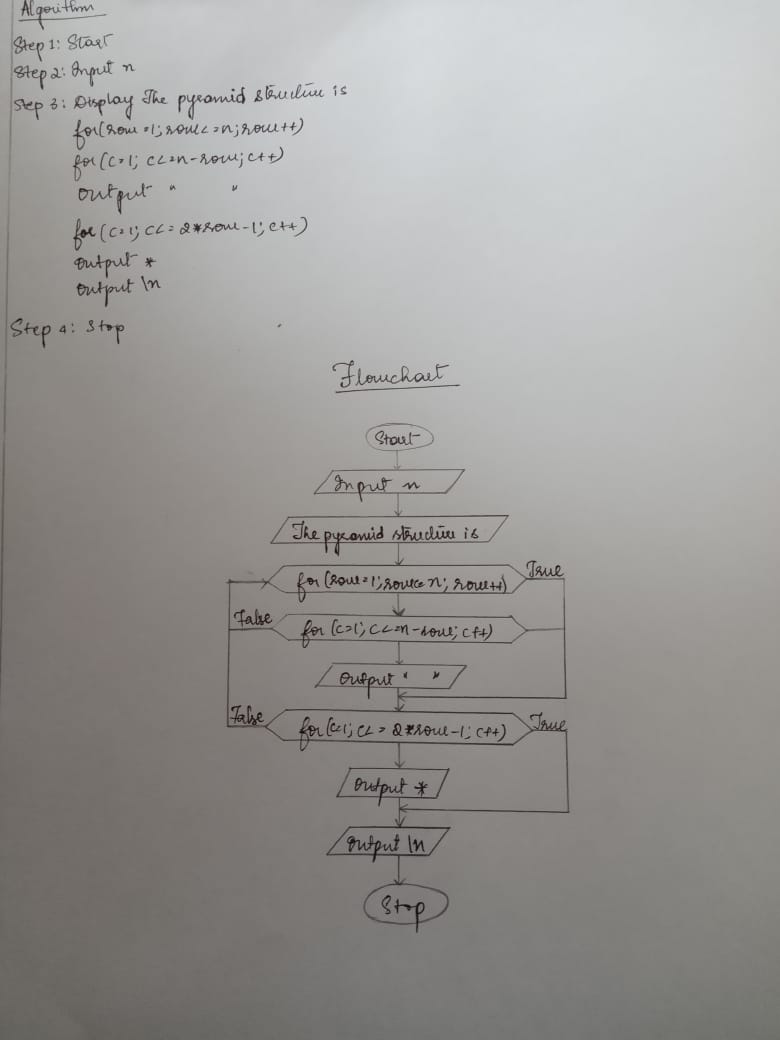 Algorithm
Step 1: Start
Step 2: Input n
Step 3: Display The pyramid structure is
for(row=1; row<=n; row++)
for(c=1; c<=n-row; c++)
output " "
for(c=1; c<=2*row-1; c++)
output *
output \n
Step 4: Stop
Flowchart
Start
Input n
The pyramid structure is
for(row=1; row<=n; row++)
True
False
for(c=1; c<=n-row; c++)
Output " "
False
for(c=1; c<=2*row-1; c++)
True
Output *
output \n
Stop